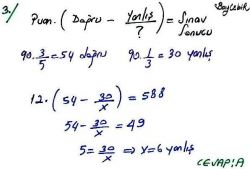 3./ Puan. ( Doğru - Yanlış/? ) = Sınav Sonucu
90. 3/5 = 54 doğru 90. 1/3 = 30 yanlış
12. ( 54 - 30/x ) = 588
54 - 30/x = 49
5 = 30/x ⇒ x = 6 yanlış
CEVAP: A